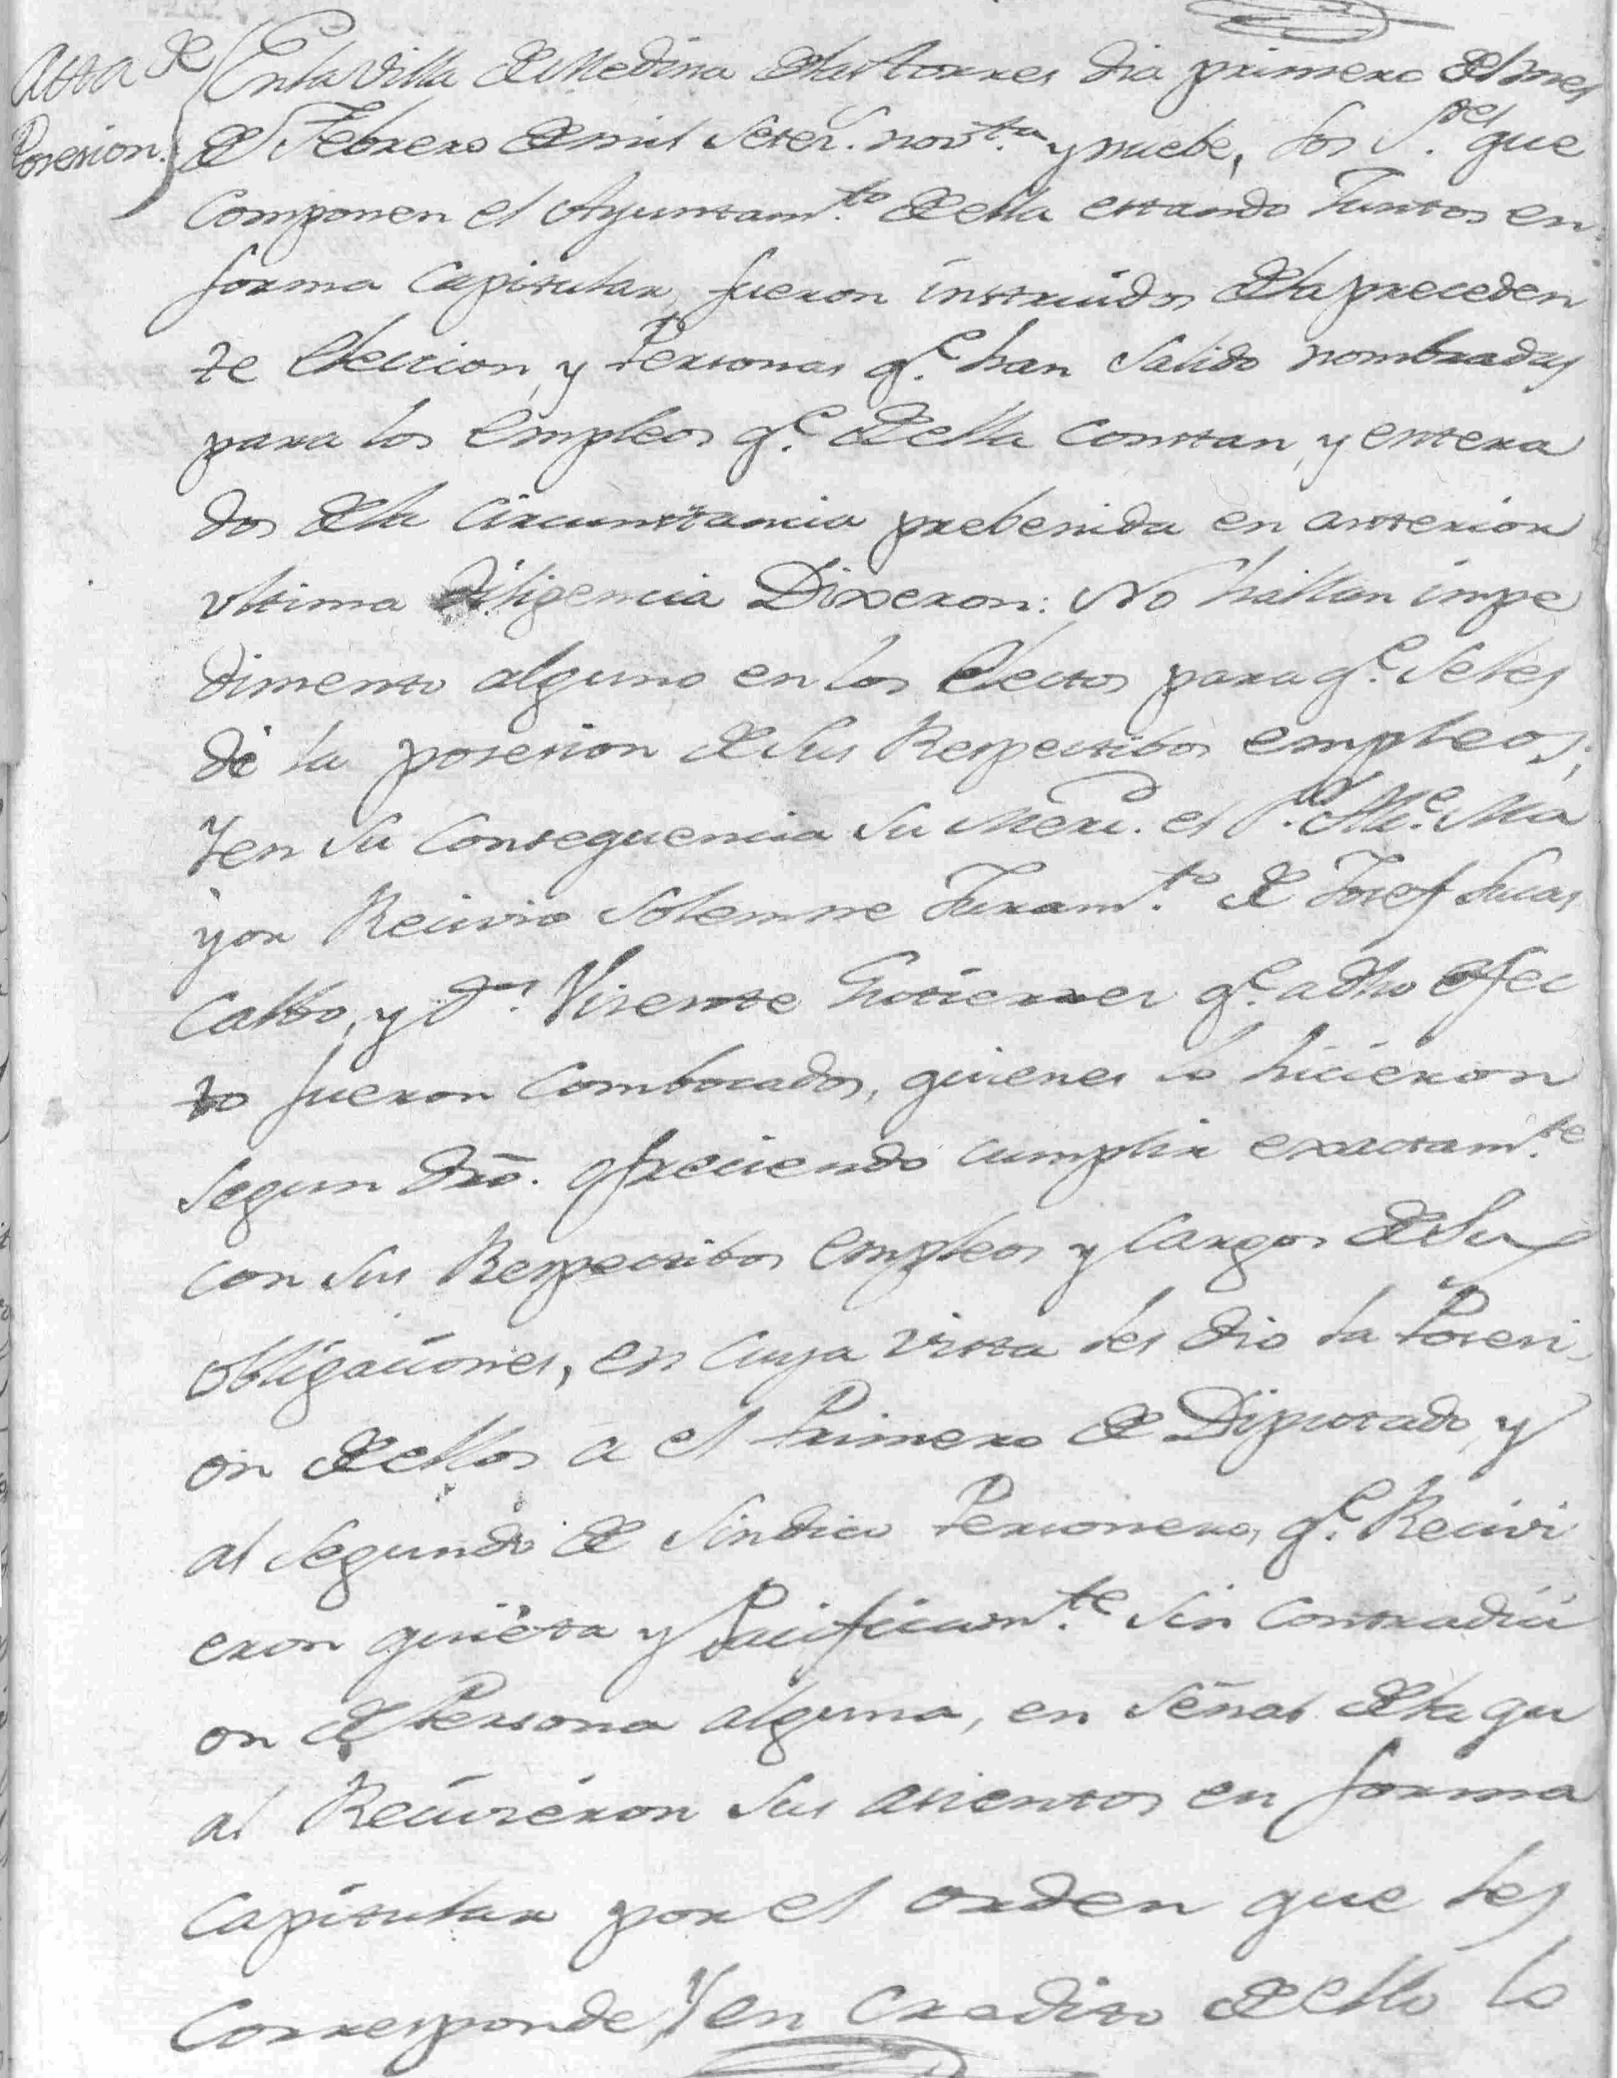 Atta de
Posesion.
En la Villa de Medina delas torres dia primero del mes
de Febrero de mil Setez. nov.ta y nuebe, los S.res que
Componen el Ayuntam.to de ella estando Juntos en
forma Capitular, fueron instruidos dela preceden
te Eleccion, y Personas q.e han Salido nombradas
para los Empleos q.e de ella Constan, y entera
dos dela Circunstancia prebenida en anterior
ultima diligencia Dixeron: No hallan impe
dimento alguno en los Electos para q.e Seles
dé la posesion de Sus Respectibos empleos;
Y en Su Consequencia Su Merc. el S.or Alc.e Ma
yor Recivio Solemne Juram.to de Josef Lucas
Calbo, y D.n Vicente Gutierrez q.e a dho efec
to fueron Combocados, quienes lo hicieron
Segun dro. ofreciendo cumplir exactam.te
con Sus Respectibos Empleos y Cargos de Su
obligaciones, en Cuya Vista les dio la Posesi
on de ellos a el Primero de Diputado, y
al Segundo de Sindico Personero, q.e Recivi
eron quieta y Pacificam.te Sin Contradici
on de Persona alguna, en Señal dela qu
al Recivieron Sus asientos en forma
Capitular por el orden que les
Corresponde, Y en Credito de ello lo